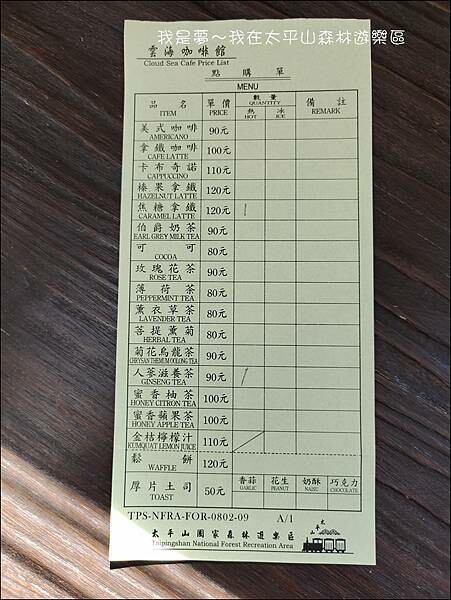 我是夢～我在太平山森林遊樂區
雲海咖啡館
Cloud Sea Cafe Price List
點購單
MENU
品名 單價 數量 備註
ITEM PRICE QUANTITY REMARK
熱 冰
HOT ICE
美式咖啡 90元
AMERICANO
拿鐵咖啡 100元
CAFE LATTE
卡布奇諾 110元
CAPPUCCINO
榛果拿鐵 120元
HAZELNUT LATTE
焦糖拿鐵 120元
CARAMEL LATTE
伯爵奶茶 90元
EARL GREY MILK TEA
可可 80元
COCOA
玫瑰花茶 90元
ROSE TEA
薄荷茶 80元
PEPPERMINT TEA
薰衣草茶 80元
LAVENDER TEA
菩提薰菊 80元
HERBAL TEA
菊花烏龍茶 90元
CHRYSANTHEMUM OOLONG TEA
人蔘滋養茶 90元
GINSENG TEA
蜜香柚茶 100元
HONEY CITRON TEA
蜜香蘋果茶 100元
HONEY APPLE TEA
金桔檸檬汁 110元
KUMQUAT LEMON JUICE
鬆餅 120元
WAFFLE
厚片土司 50元 香蒜 花生 奶酥 巧克力
TOAST GARLIC PEANUT NAISU CHOCOLATE
TPS-NFRA-FOR-0802-09 A/1
太平山國家森林遊樂區
Taipingshan National Forest Recreation Area
太平山